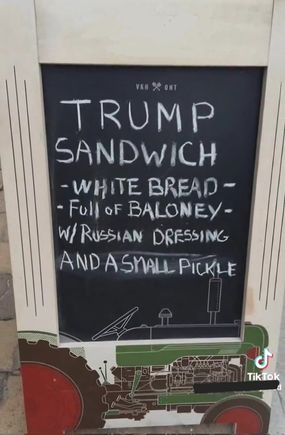 VNH ONT
TRUMP
SANDWICH
-WHITE BREAD-
-Full of BALONEY-
W/ RUSSIAN DRESSING
AND A SMALL PICKLE
TikTok